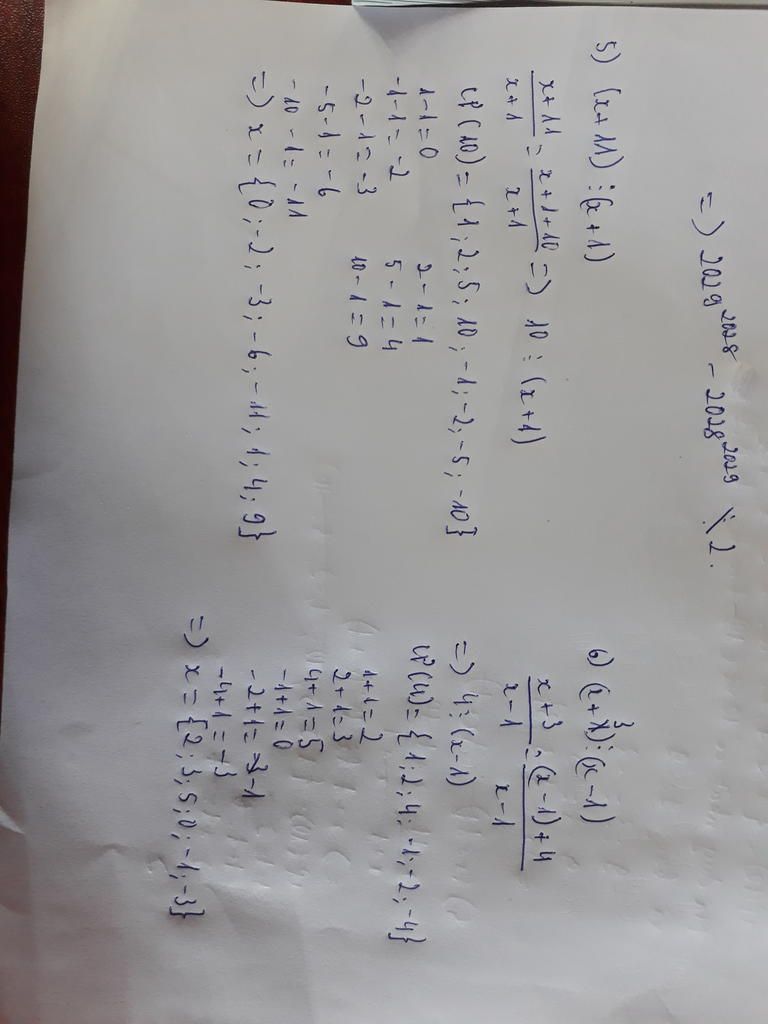 =) 2029^2028 - 2028^2029 ⋮̸ 2.
5) (x+11) ⋮ (x+1)
x+11/x+1 = x+1+10/x+1 => 10 ⋮ (x+1)
Ư(10) = {1; 2; 5; 10; -1; -2; -5; -10}
1-1=0 2-1=1
-1-1=-2 5-1=4
-2-1=-3 10-1=9
-5-1=-6
-10-1=-11
=) x = {0; -2; -3; -6; -11; 1; 4; 9}
6) (x+3) ⋮ (x-1)
x+3/x-1 = (x-1)+4/x-1
=) 4 ⋮ (x-1)
Ư(4) = {1; 2; 4; -1; -2; -4}
1+1=2
2+1=3
4+1=5
-1+1=0
-2+1=-1
-4+1=-3
=) x = {2; 3; 5; 0; -1; -3}